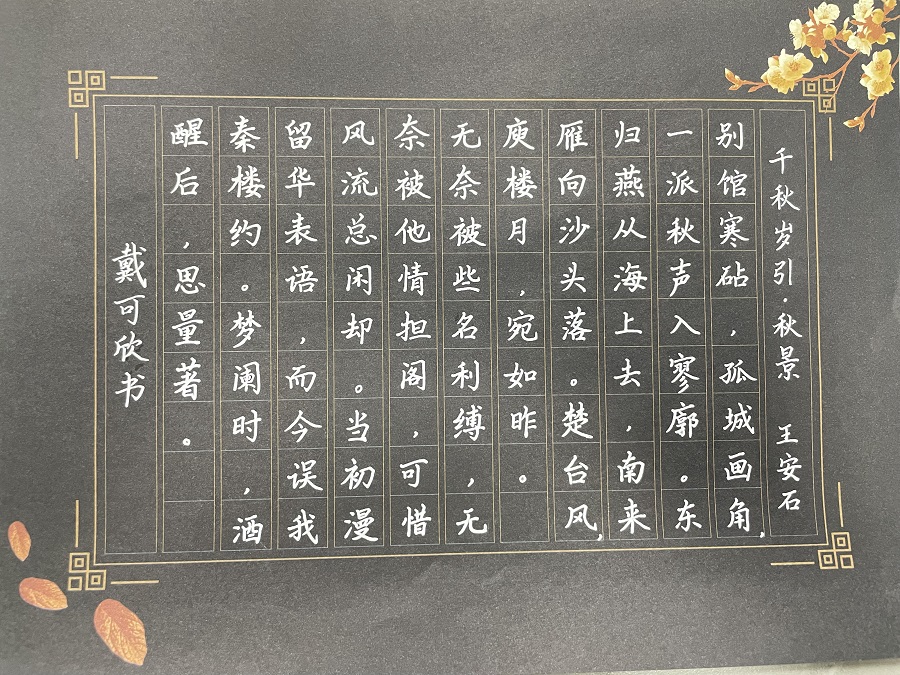 千秋岁引·秋景 王安石
别馆寒砧，孤城画角，
一派秋声入寥廓。东
归燕从海上去，南来
雁向沙头落。楚台风，
庾楼月，宛如昨。
无奈被些名利缚，无
奈被他情担阁，可惜
风流总闲却。当初漫
留华表语，而今误我
秦楼约。梦阑时，酒
醒后，思量著。
戴可欣书